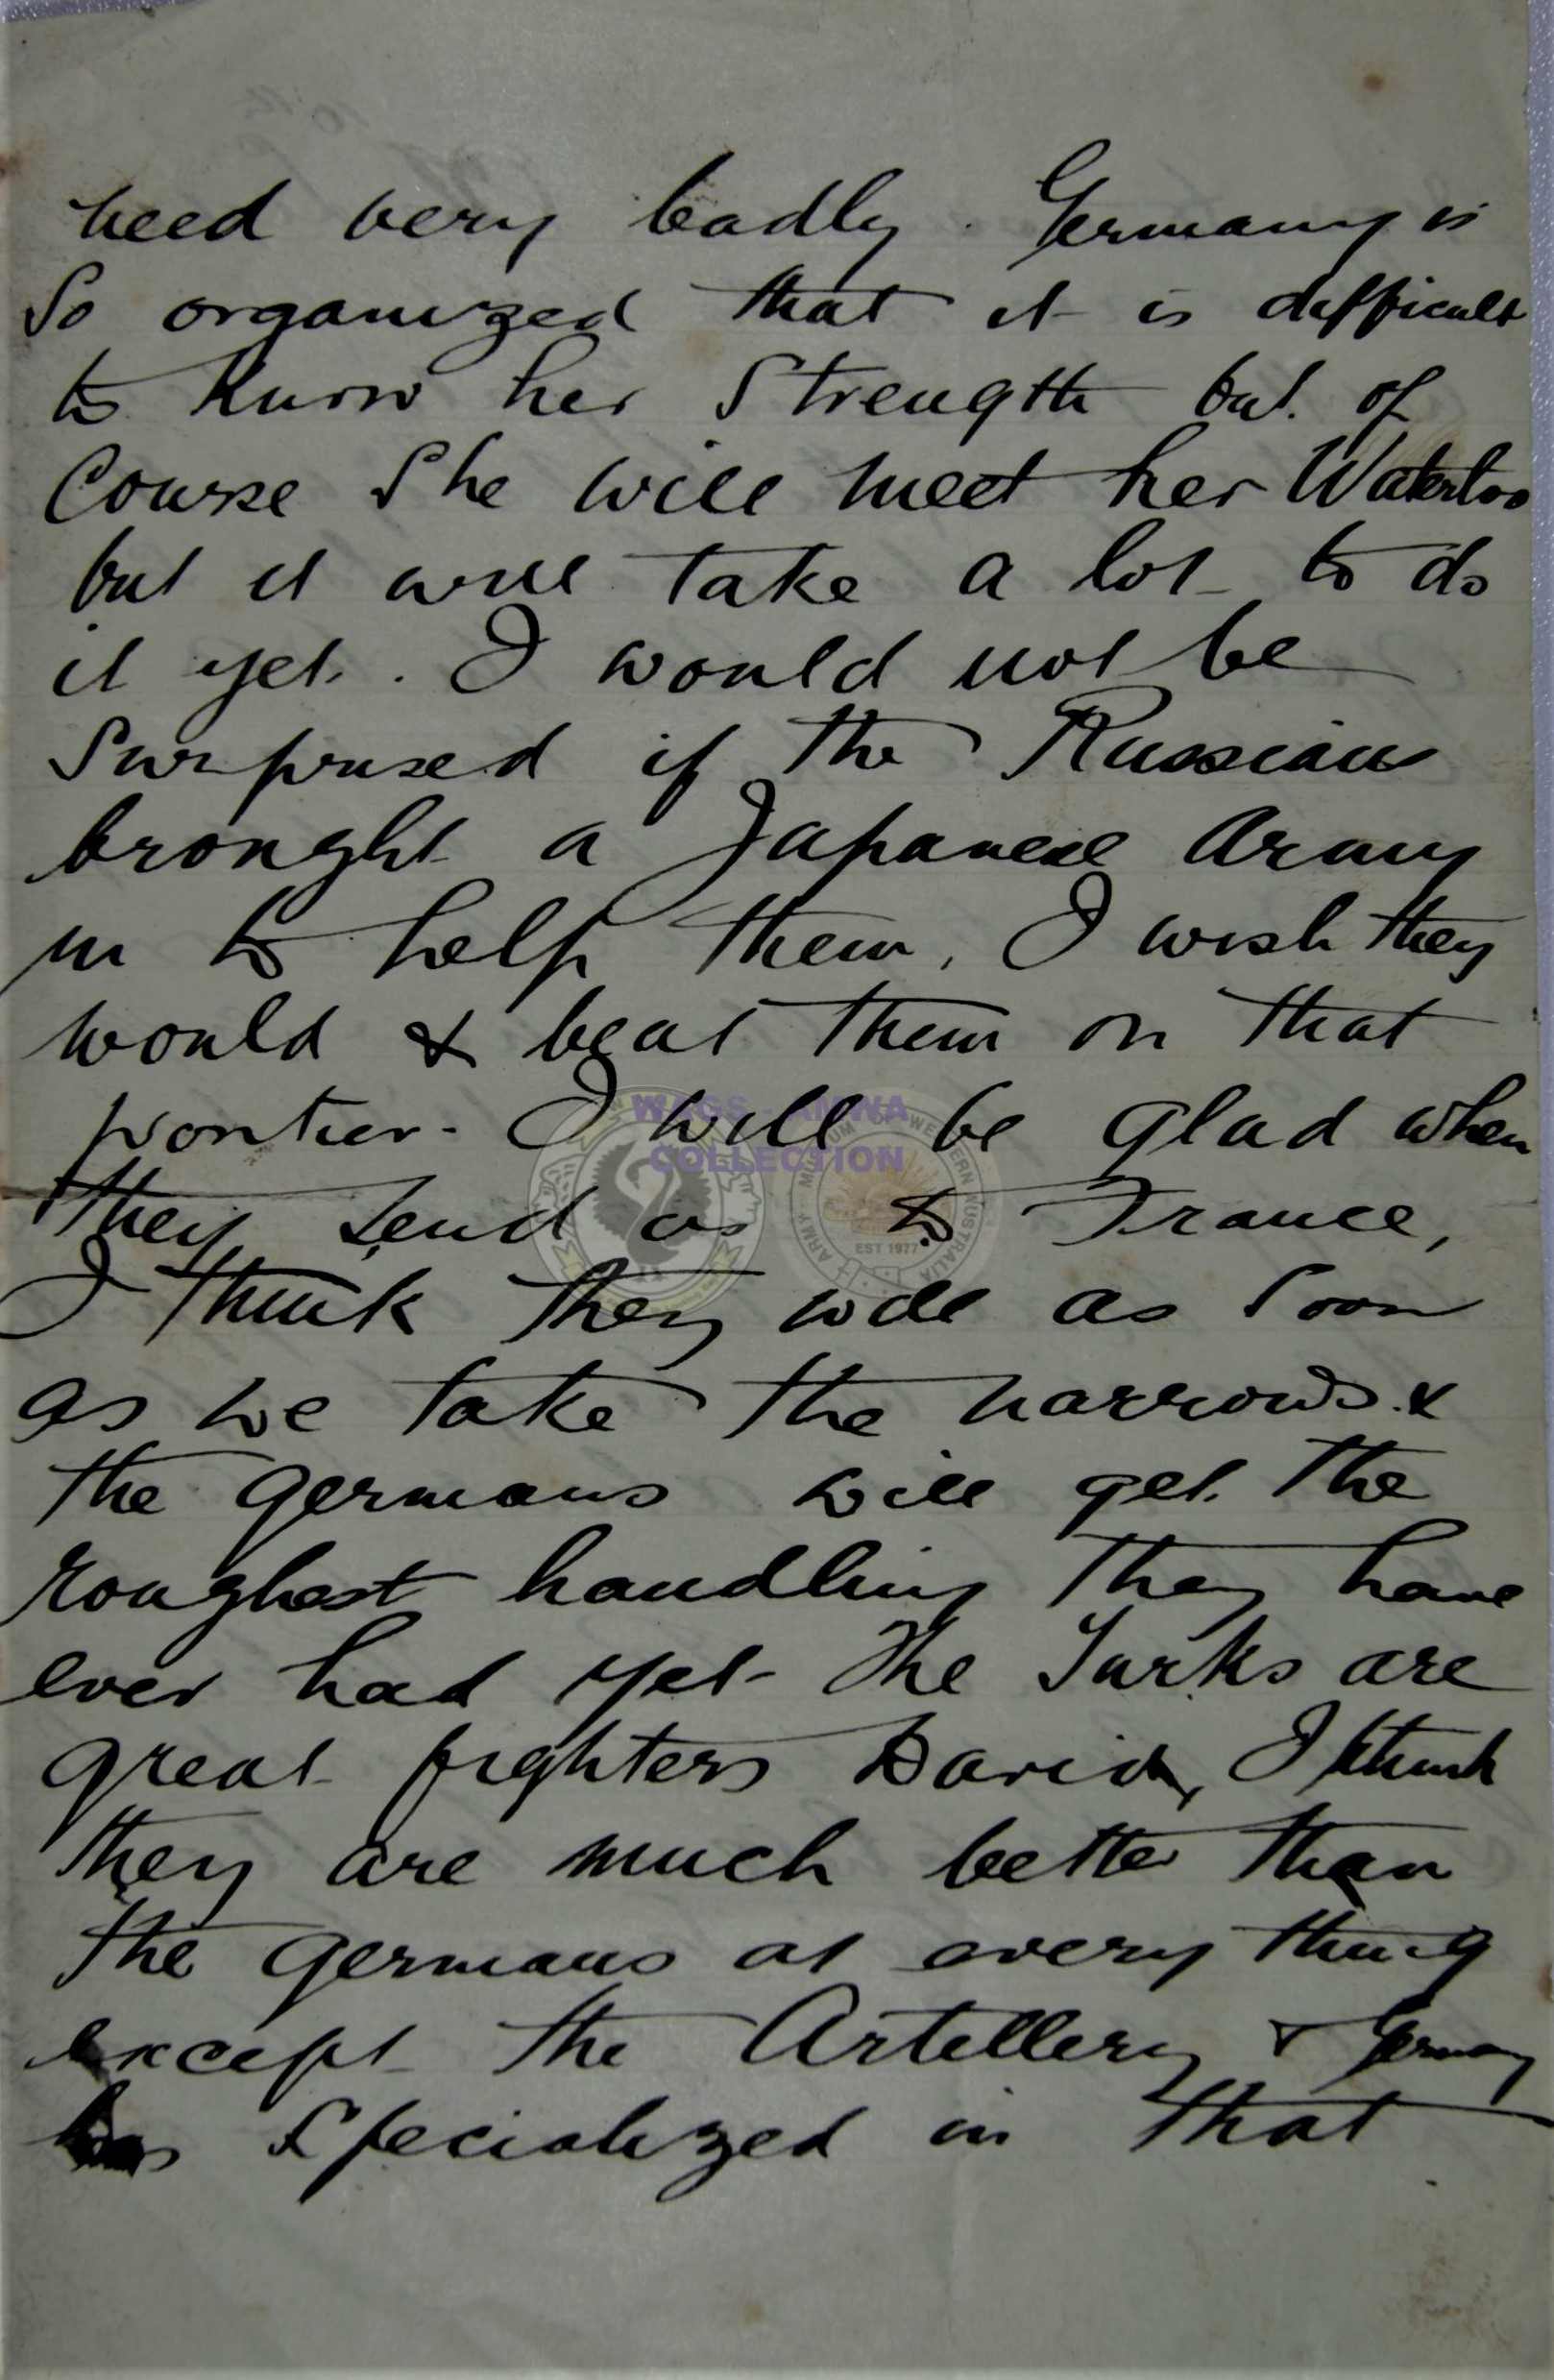 need very badly. Germany is
so organized that it is difficult
to know her strength but of
Course She will meet her Waterloo
but it will take a lot to do
it yet. I would not be
surprised if the Russians
brought a Japanese Army
in to help them, I wish they
would & beat them on that
frontier. I will be glad when
they send us to France,
I think they will as soon
as we take the narrows &
the germans will get the
roughest handling they have
ever had yet The Turks are
great fighters David, I think
they are much better than
the germans at every thing
except the Artillery & Germany
has specialized in that
WAGS - AMWA
COLLECTION
ARMY MUSEUM OF WESTERN AUSTRALIA
EST 1977